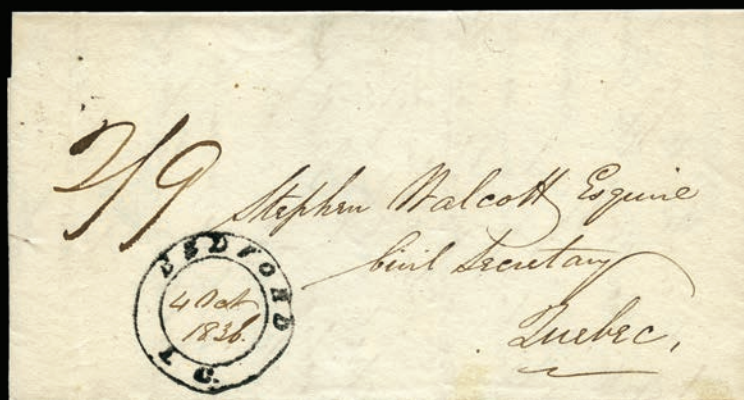 2/9
Stephen Walcott Esquire
Civil Secretary
Quebec,
BEDFORD
4 Oct
1836.
L. C.